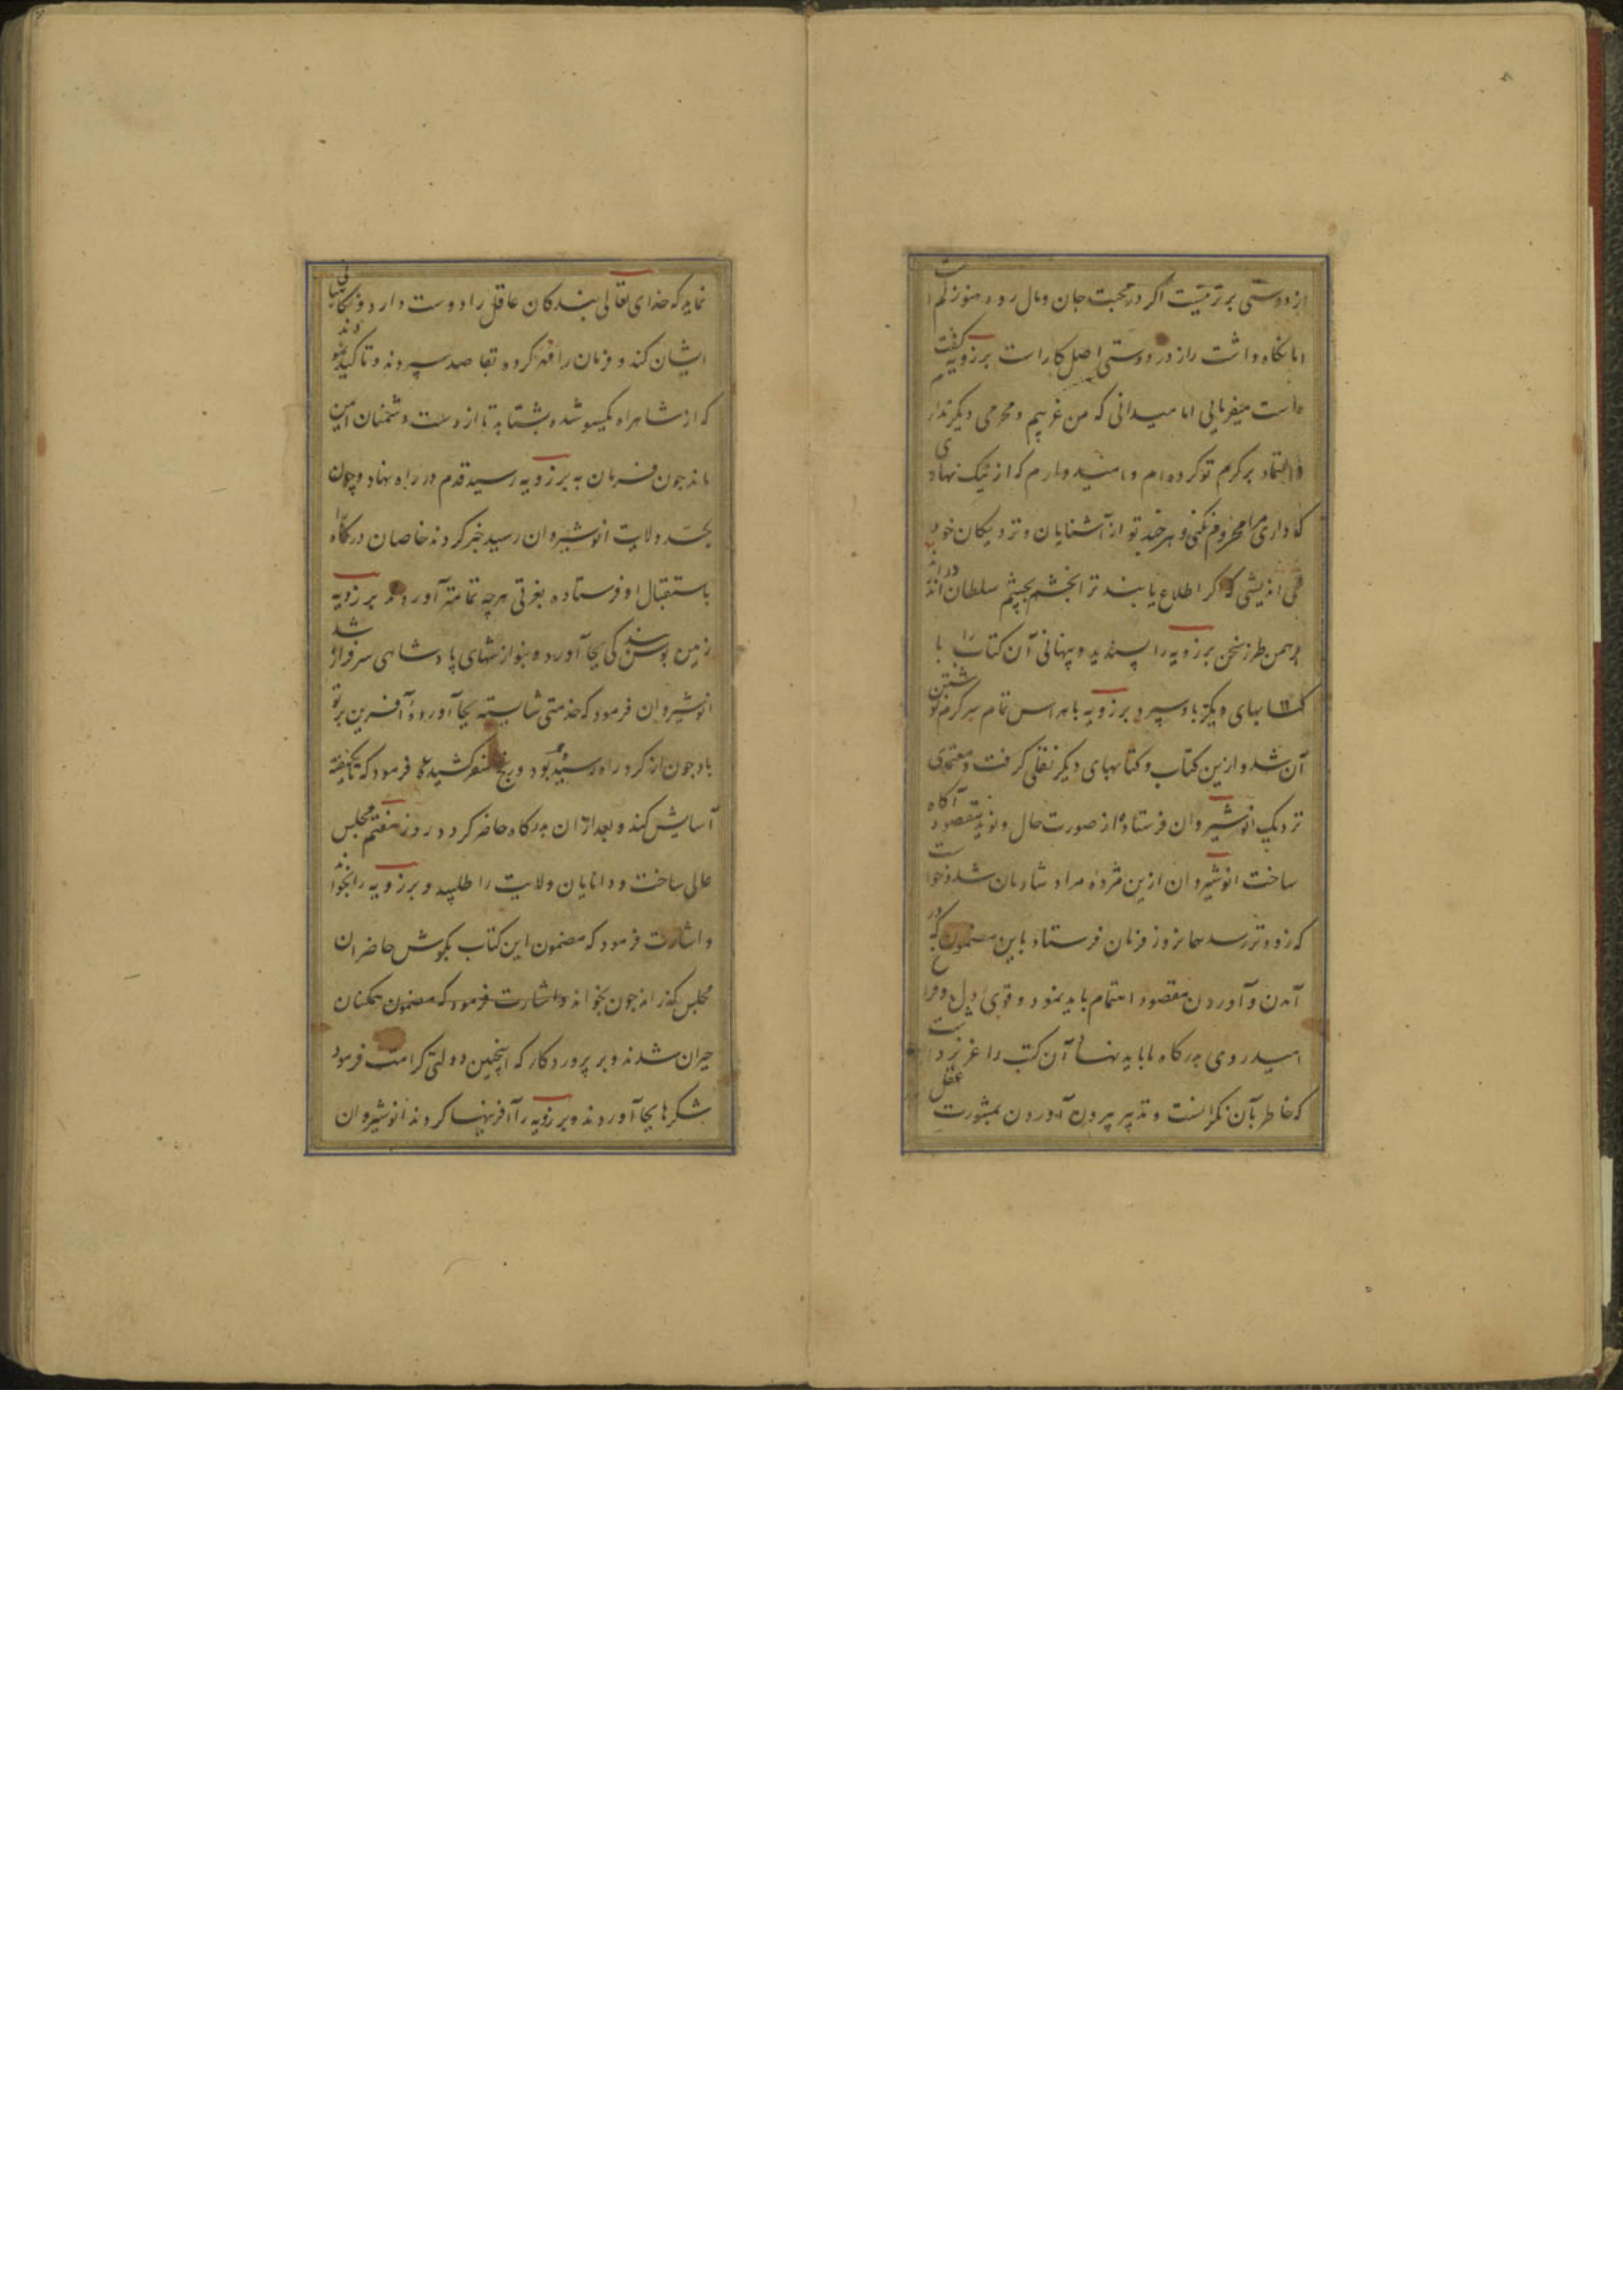 از دوستی برتر نیست اگر در محبت جان و مال رود هنوز کم است
اما نگاه داشت راز در دوستی اصل کار است برزویه گفت
راست میفرمایی اما میدانی که من غریبم و محرمی دیگر ندارم
و اعتماد بر کرم تو کرده ام و امیدوارم که از نیک نهادی
که داری مرا محروم نکنی و هر چند تو از آشنایان و نزدیکان خود
می اندیشی که اگر اطلاع یابند ترا بخشم بچشم سلطان در اندازند
برهمن طرز سخن برزویه را پسندید و پنهانی آن کتاب را با
کتابهای دیگر باو سپرد برزویه با هراس تمام سرگرم نوشتن
آن شد و ازین کتاب و کتابهای دیگر نقل گرفت و معتمدی
نزدیک انوشیروان فرستاده از صورت حال و نوید مقصود آگاه
ساخت انوشیروان ازین مژده مراد شادمان شد و خواست
که زودتر رسد همانروز فرمان فرستاد باین مضمون که در
آمدن و آوردن مقصود اهتمام باید نمود و قوی دل و فراخ
امید روی بدرگاه ما باید نهاد آن کتب را عزیز داشت
که خاطر بآن نگرانست و تدبیر بیرون آوردن بمشورت عقل
نماید که خدای تعالی بندگان عاقل را دوست دارد و نگاهبانی
ایشان کند و فرمان را مهر کرده بقاصد سپردند و تاکید نمودند
که از شاهراه یکسو شده بشتابد تا از دست دشمنان ایمن
ماند چون فرمان به برزویه رسید قدم در راه نهاد و چون
بحد ولایت انوشیروان رسید خبر کردند خاصان درگاه را
باستقبال او فرستاده بعزتی هرچه تمامتر آوردند برزویه
زمین بوس بندگی بجا آورد و بنوازشهای پادشاهی سرفراز شد
انوشیروان فرمود که خدمتی شایسته بجا آورده آفرین بر تو
باد چون از گرد راه رسیده بود و رنج سفر کشیده فرمود که تا یکهفته
آسایش کند و بعد از ان بدرگاه حاضر گردد روز هفتم مجلس
عالی ساخت و دانایان ولایت را طلبید و برزویه را بخواند
و اشارت فرمود که مضمون این کتاب بگوش حاضران
مجلس گذراند چون بخواند و اشارت فرمود که مضمون همگنان
حیران شدند و بر پروردگار که اینچنین دولتی کرامت فرمود
شکرها بجا آوردند و برزویه را آفرینها کردند انوشیروان